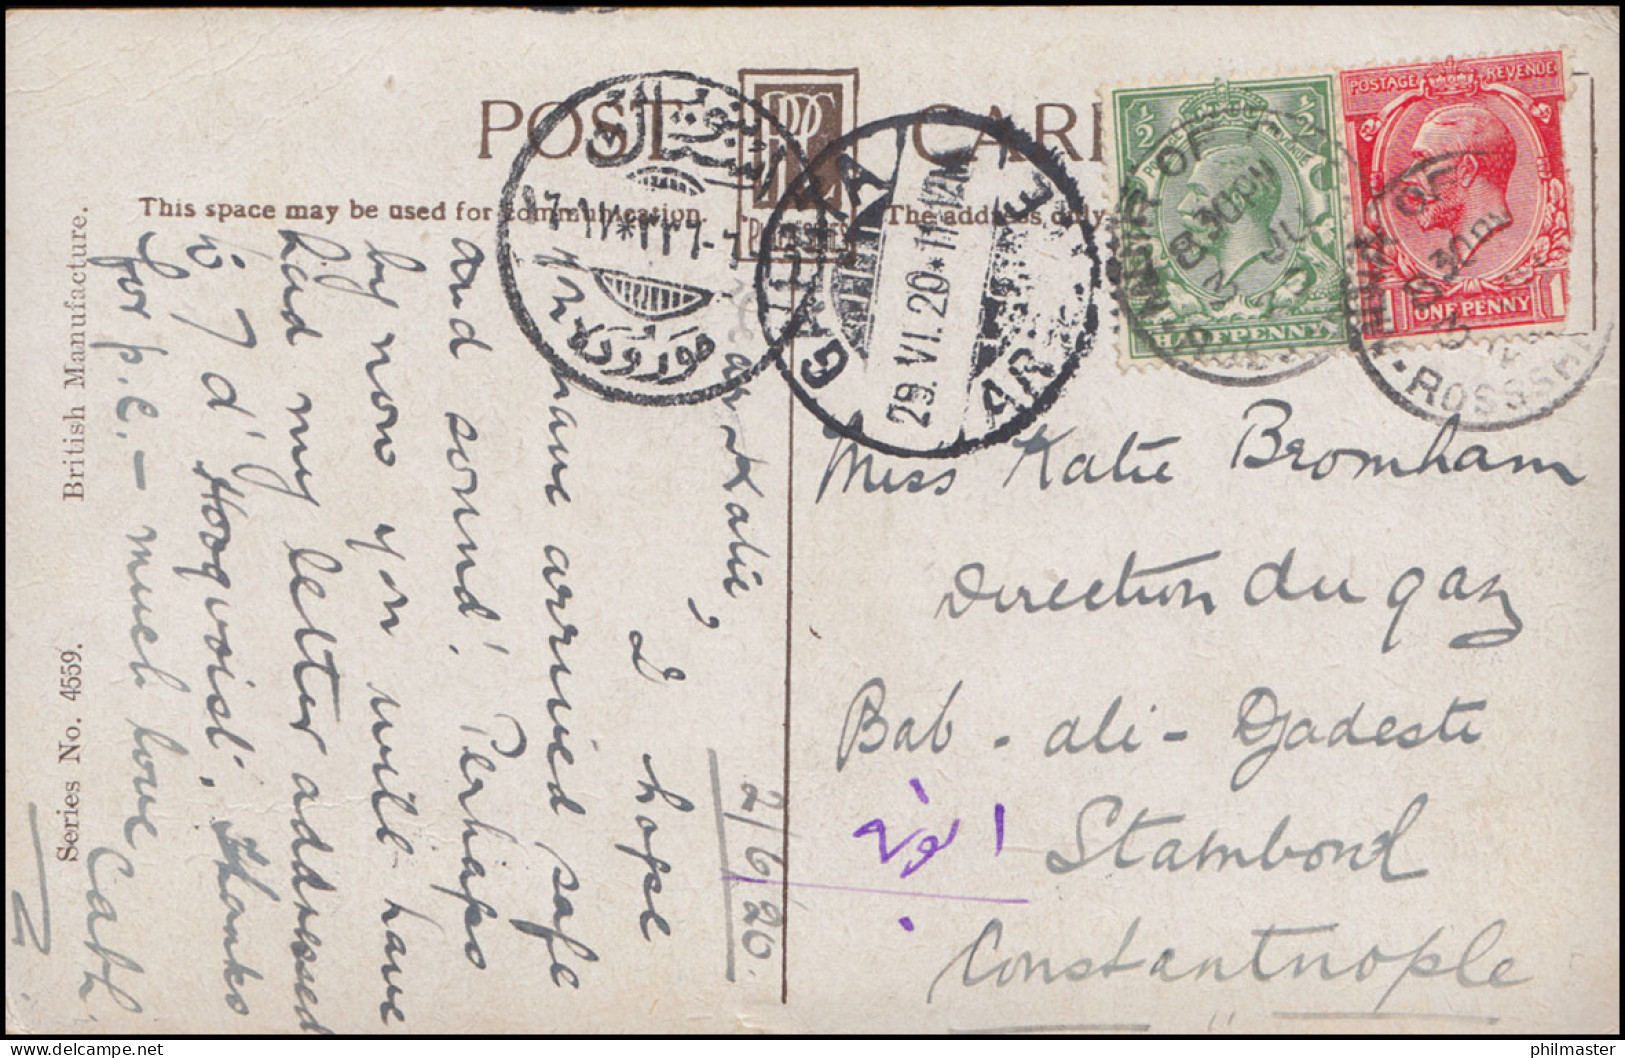 POST CARD
This space may be used for communication.
The address only
British Manufacture.
Series No. 4559.
½ ½
POSTAGE REVENUE
HALFPENNY
POSTAGE REVENUE
1 ONE PENNY 1
MUIR OF
8 30PM
MUIR OF
ROSSSH
GALATA
29.VI.20
ARR
2/6/20.
Katie,
I hope
have arrived safe
and sound. Perhaps
by now you will have
had my letter addressed
Thanks
for p.c. – much love
Cath.
Miss Katie Bromham
Direction du gaz
Bab - ali - Djadesti
Stamboul
Constantnople
philmaster